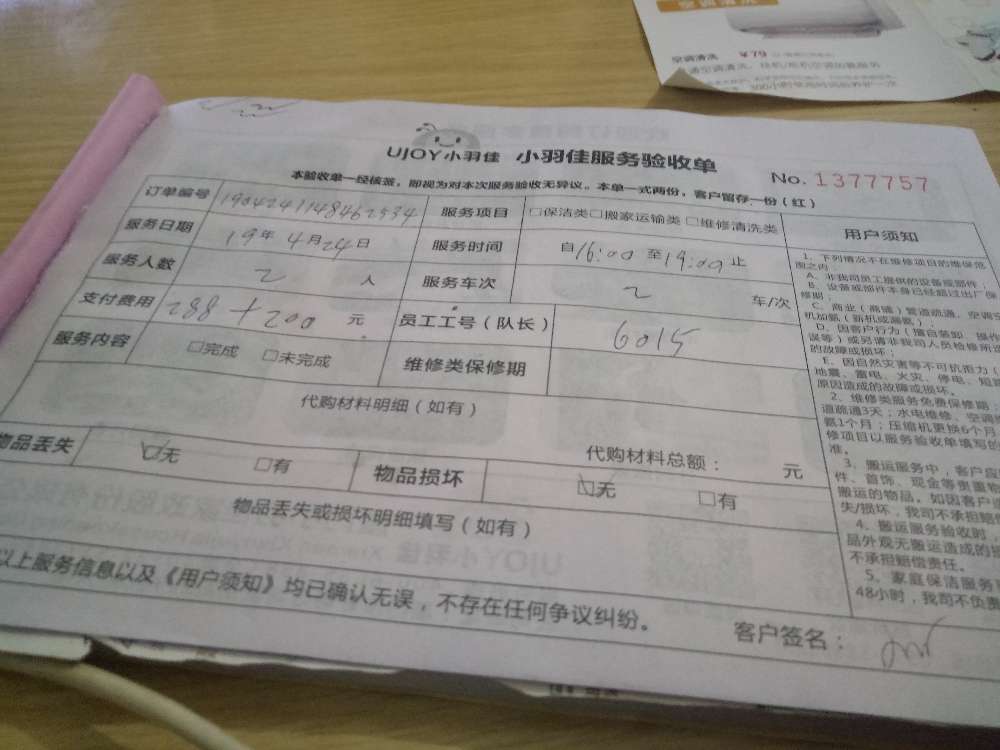 空调清洗
空调清洗 ¥79
300小时使用时间前养护一次
UJOY小羽佳 小羽佳服务验收单
No. 1377757
本验收单一经核签，即视为对本次服务验收无异议。本单一式两份，客户留存一份（红）
订单编号 1904241148462534 服务项目 □保洁类□搬家运输类□维修清洗类
服务日期 19年 4月24日 服务时间 自16:00 至19:00止
服务人数 2 人 服务车次 2 车/次
支付费用 288+200 元 员工工号（队长） 6015
服务内容 □完成 □未完成 维修类保修期
代购材料明细（如有）
代购材料总额： 元
物品丢失 ☑无 □有 物品损坏 ☑无 □有
物品丢失或损坏明细填写（如有）
以上服务信息以及《用户须知》均已确认无误，不存在任何争议纠纷。
客户签名：
用户须知
1、下列情况不在维修项目的维保范
围之内：
A、非我司员工提供的设备或部件；
B、设备或部件本身已经超过出厂保
修期；
C、商业（商铺）管道疏通、空调
机加氨（新机或漏氨）
D、因客户行为（擅自装卸、操作
误等）或另请非我司人员检修所
的故障或损坏；
E、因自然灾害等不可抗拒力（
地震、雷电、火灾、停电、短
原因造成的故障或损坏。
2、维修类服务免费保修期：
道疏通3天；水电维修、空调
氨1个月；压缩机更换6个月
修项目以服务验收单填写
准。
3、搬运服务中，客户应
件、首饰、现金等贵重物
搬运的物品。如因客户
失/损坏，我司不承担赔
4、搬运服务验收时，
品外观无搬运造成的
不承担赔偿责任。
5、家庭保洁服务
48小时，我司不负责